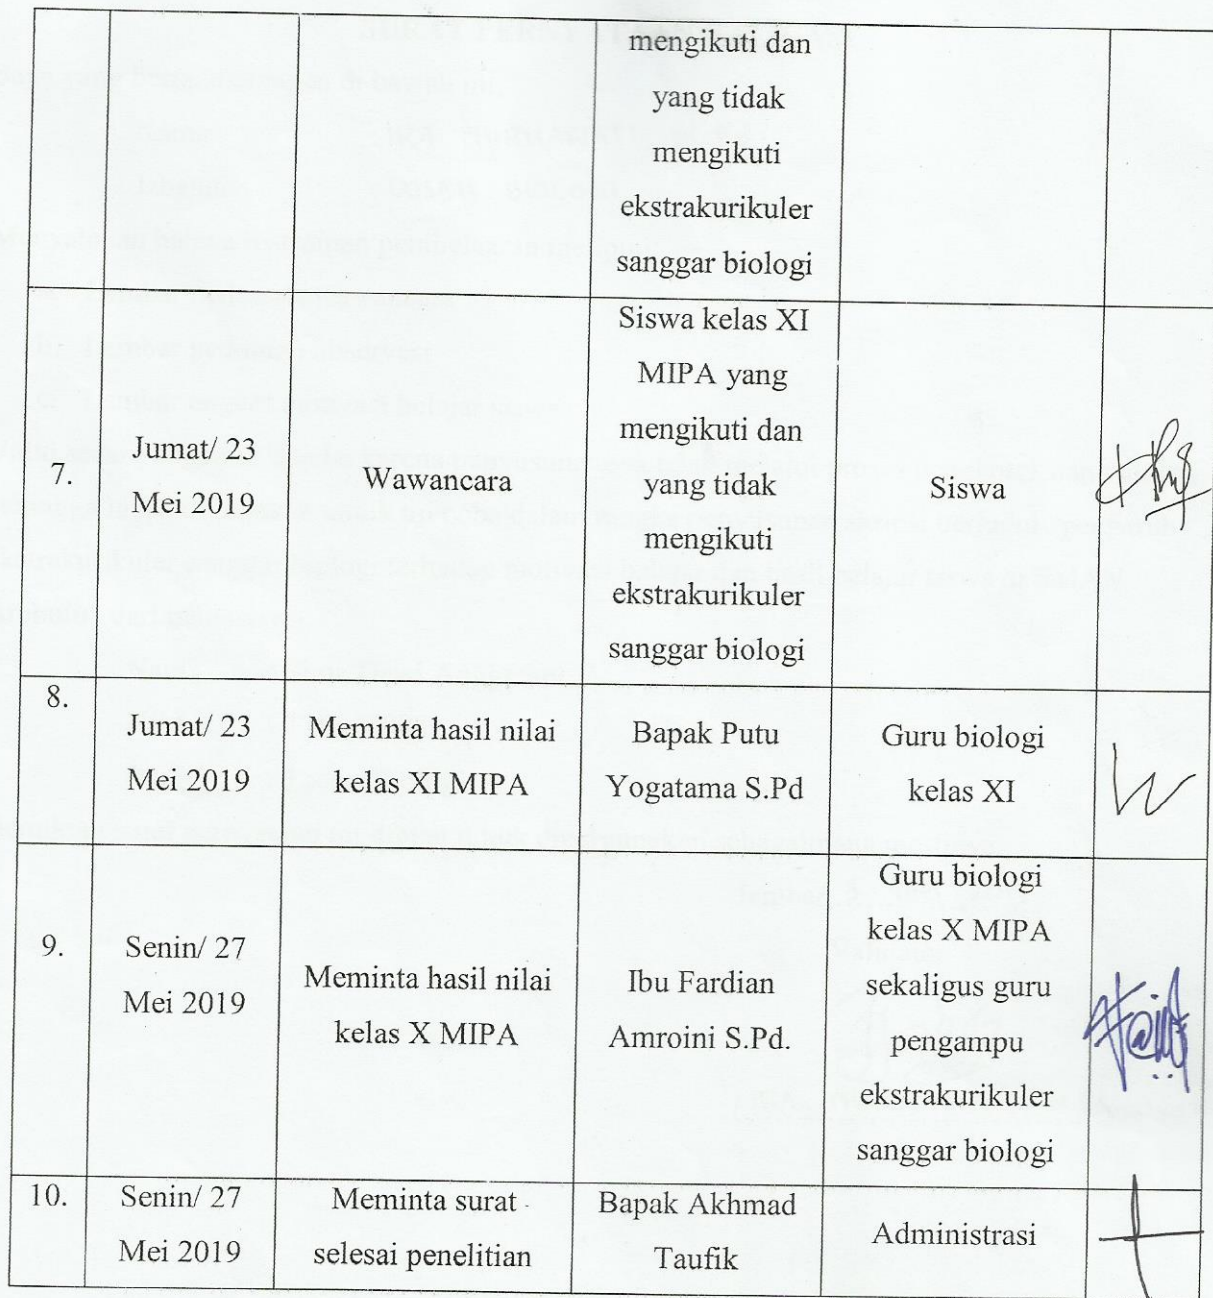 mengikuti dan
yang tidak
mengikuti
ekstrakurikuler
sanggar biologi
7.
Jumat/ 23
Mei 2019
Wawancara
Siswa kelas XI
MIPA yang
mengikuti dan
yang tidak
mengikuti
ekstrakurikuler
sanggar biologi
Siswa
8.
Jumat/ 23
Mei 2019
Meminta hasil nilai
kelas XI MIPA
Bapak Putu
Yogatama S.Pd
Guru biologi
kelas XI
9.
Senin/ 27
Mei 2019
Meminta hasil nilai
kelas X MIPA
Ibu Fardian
Amroini S.Pd.
Guru biologi
kelas X MIPA
sekaligus guru
pengampu
ekstrakurikuler
sanggar biologi
10.
Senin/ 27
Mei 2019
Meminta surat
selesai penelitian
Bapak Akhmad
Taufik
Administrasi